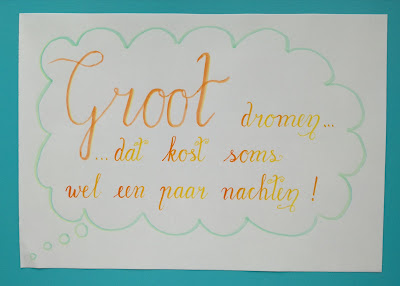 Groot dromen...
...dat kost soms
wel een paar nachten !